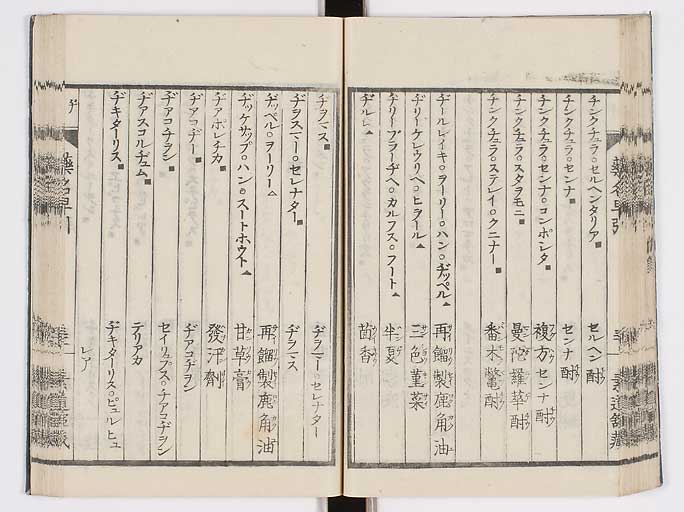 チンクチュラ○セルヘンタリア■ セルヘン酎
チンクチュラ○センナ■ センナ酎
チンクチュラ○センナ○コンポシタ■ 複方センナ酎
チンクチュラ○スタラモニ■ 曼陀羅華酎
チンクチュラ○ステレイ○クニナー■ 番木鼈酎
ヂールレイキ○ヲーリー○ハン○ヂッペル▲ 再餾製鹿角油
ヂリーケレウリヘ○ヒヲール▲ 三色菫菜
ヂリーブラーヂヘ○カルフス○フート▲ 半夏
ヂルレ▲ 茴香
ヂヲニス■ ヂヲニー○セレナター
ヂヲスニー○セレナター■ ヂヲニス
ヂッペル○ヲーリー▲ 再餾製鹿角油
ヂッケサップ○ハン○スートホウト▲ 甘草膏
ヂアポレチカ■ 發汗劑
ヂアコヂー■ ヂアコヂヲン
ヂアコチヲン■ セイリュプス○チアコヂヲン
ヂアスコルヂュム■ テリアカ
ヂキターリス■ ヂキターリス○ピュルヒュ
レア
ヂ
藥名早引